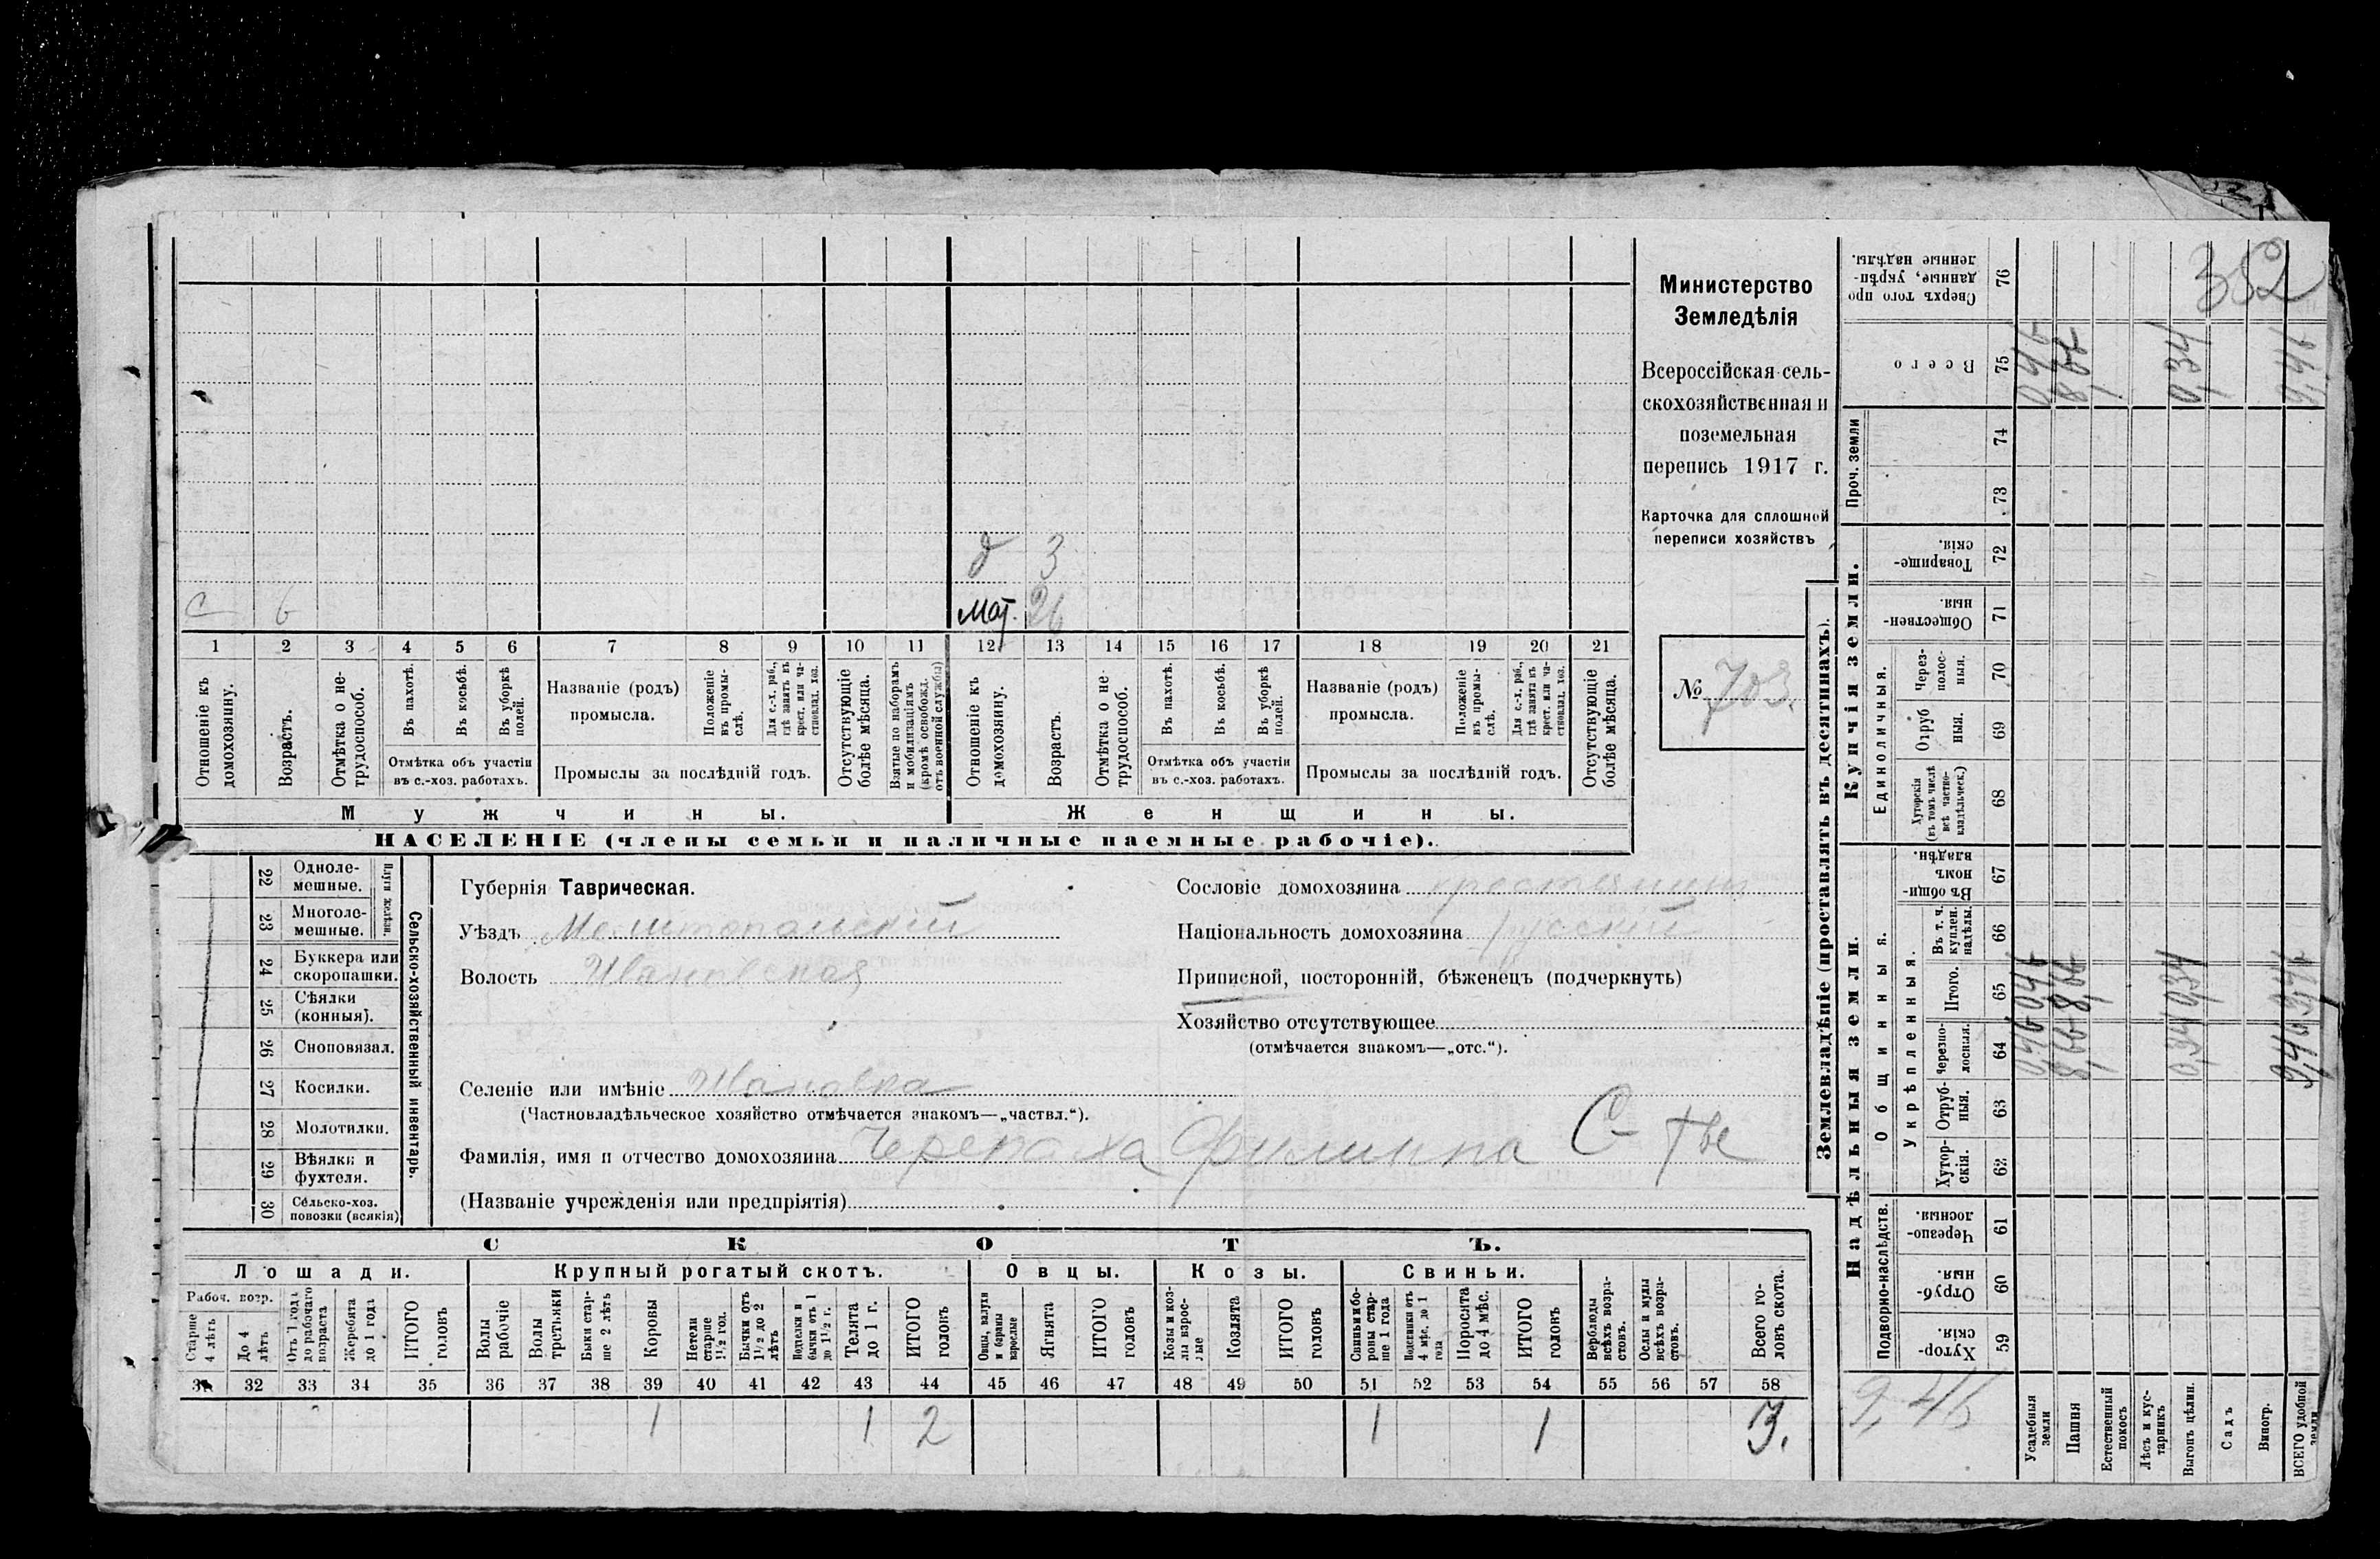 352
Министерство
Земледѣлія
Всероссійская сель-
скохозяйственная и
поземельная
перепись 1917 г.
Карточка для сплошной
переписи хозяйствъ
№ 703.
д 3
с 6 мат. 26
1 2 3 4 5 6 7 8 9 10 11 12 13 14 15 16 17 18 19 20 21
Отношеніе къ домохозяину.
Возрастъ.
Отмѣтка о не-трудоспособ.
Въ пахотѣ.
Въ косьбѣ.
Въ уборкѣ полей.
Отмѣтка объ участіи
въ с.-хоз. работахъ.
Названіе (родъ)
промысла.
Положеніе въ промы-слѣ.
Для с.-х. раб., гдѣ занятъ въ крест. или ча-стновлад. хоз.
Промыслы за послѣдній годъ.
Отсутствующіе болѣе мѣсяца.
Взятые по наборамъ и мобилизаціямъ (кромѣ освобожд. отъ военной службы)
Отношеніе къ домохозяину.
Возрастъ.
Отмѣтка о не-трудоспособ.
Въ пахотѣ.
Въ косьбѣ.
Въ уборкѣ полей.
Отмѣтка объ участіи
въ с.-хоз. работахъ.
Названіе (родъ)
промысла.
Положеніе въ промы-слѣ.
Для с.-х. раб., гдѣ занята въ крест. или ча-стновлад. хоз.
Промыслы за послѣдній годъ.
Отсутствующіе болѣе мѣсяца.
Мужчины. Женщины.
НАСЕЛЕНІЕ (члены семьи и наличные наемные рабочіе).
22 Одноле-мешные.
23 Многоле-мешные.
Плуги желѣзн.
24 Буккера или скоропашки.
25 Сѣялки (конныя).
26 Сноповязал.
27 Косилки.
28 Молотилки.
29 Вѣялки и фухтели.
30 Сельско-хоз. повозки (всякія)
Сельско-хозяйственный инвентарь.
Губернія Таврическая.
Уѣздъ Мелитопольскій
Волость Ивановская
Селеніе или имѣніе Ивановка
(Частновладѣльческое хозяйство отмѣчается знакомъ—„частвл.“).
Фамилія, имя и отчество домохозяина Черепаха Филиппа С-тве
(Названіе учрежденія или предпріятія)
Сословіе домохозяина крестьянинъ
Національность домохозяина русскій
Приписной, посторонній, бѣженецъ (подчеркнуть)
Хозяйство отсутствующее
(отмѣчается знакомъ—„отс.“).
СКОТЪ.
Лошади. Крупный рогатый скотъ. Овцы. Козы. Свиньи.
Рабоч. возр.
Старше 4 лѣтъ
До 4 лѣтъ
Отъ 1 года до рабочаго возраста
Жеребята до 1 года
ИТОГО головъ
Волы рабочіе
Волы третьяки
Быки стар-ше 2 лѣтъ
Коровы
Нетели старше 1½ год.
Бычки отъ 1½ до 2 лѣтъ
Подтелки и бычки отъ 1 до 1½ г.
Телята до 1 г.
ИТОГО головъ
Овцы, валухи и бараны взрослые
Ягнята
ИТОГО головъ
Козы и коз-лы взрос-лые
Козлята
ИТОГО головъ
Свиньи и бо-ровы стар-ше 1 года
Подсвинки отъ 4 мѣс. до 1 года
Поросята до 4 мѣс.
ИТОГО головъ
Верблюды всѣхъ возра-стовъ.
Ослы и мулы всѣхъ возра-стовъ.
Всего го-ловъ скота.
31 32 33 34 35 36 37 38 39 40 41 42 43 44 45 46 47 48 49 50 51 52 53 54 55 56 57 58
1 1 2 1 1 3.
Землевладѣніе (проставлять въ десятинахъ).
Надѣльныя земли. Купчія земли. Проч. земли
Подворно-наслѣдств.
Общинныя.
Укрѣпленныя.
Единоличныя.
Хутор-скія. 59
Отруб-ныя. 60
Черезпо-лосныя. 61
Хутор-скія. 62
Отруб-ныя. 63
Черезпо-лосныя. 64
Итого. 65
Въ т. ч. куплен. надѣлы. 66
Въ общин-номъ владѣн. 67
Хуторскія (въ томъ числѣ всѣ частно-владѣльческ.) 68
Отруб ныя. 69
Через-полос-ныя. 70
Обществен-ныя. 71
Товарище-скія. 72
73
74
Всего 75
Сверхъ того про данные, укрѣп-ленные надѣлы. 76
9,46
Усадебныя земли 0,46 0,46 0,46
Пашня 8,66 8,66 8,66
Естественный покосъ
Лѣсъ и кус-тарникъ
Выгонъ цѣлин. 0,34 0,34 0,34
Садъ
Виногр.
ВСЕГО удобной земли 9,46 9,46 9,46